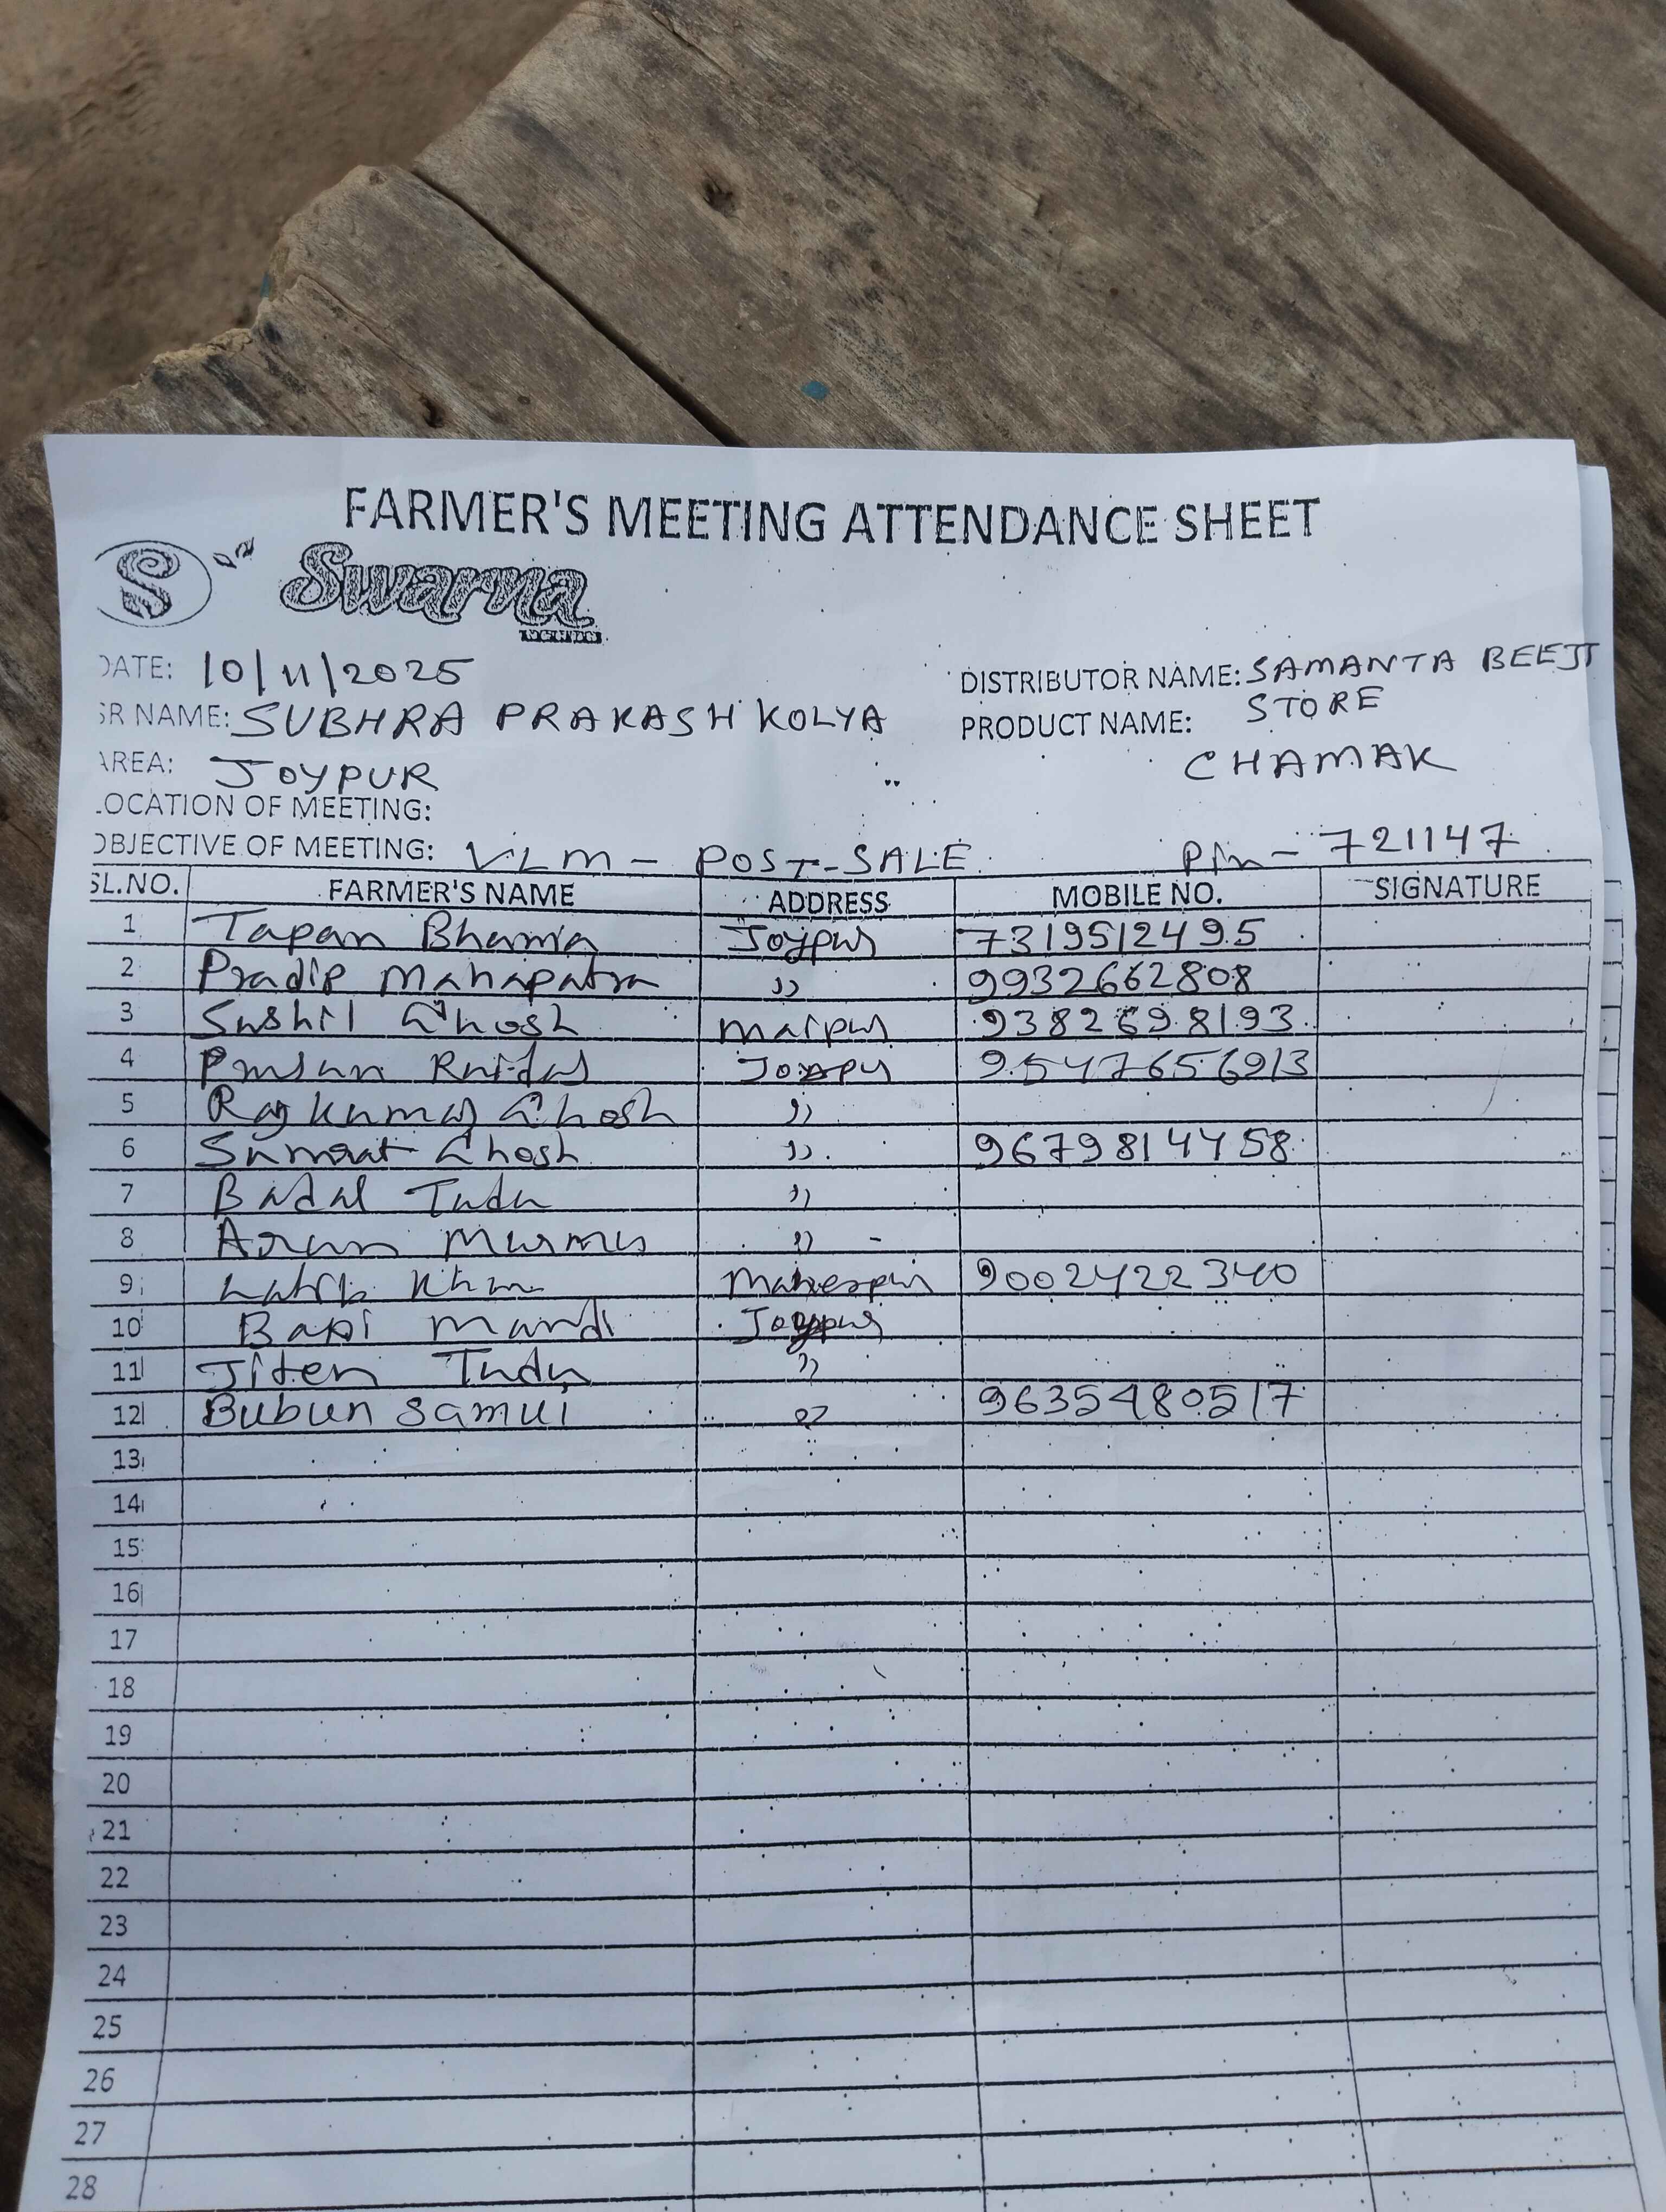 FARMER'S MEETING ATTENDANCE SHEET
S Swarna
DATE: 10/11/2025
DISTRIBUTOR NAME: SAMANTA BEEJ
STORE
SR NAME: SUBHRA PRAKASH KOLYA
PRODUCT NAME:
CHAMAK
AREA: JOYPUR
LOCATION OF MEETING:
OBJECTIVE OF MEETING: VLM - POST-SALE Pin - 721147
SL.NO. FARMER'S NAME ADDRESS MOBILE NO. SIGNATURE
1 Tapan Joypur 7319512495
2 Pradip Mahapatra " 9932662808
3 Sushil Ghosh 9382698193
4 Ruidas 9547656913
5 Rajkumar Ghosh "
6 Samrat Ghosh " 9679814458
7 Badal Tudu "
8 Arun Murmu " -
9 Khan 9002422340
10 Bapi Mandi Joypur
11 Jiten Tudu "
12 Bubun Samui 9635480517
13
14
15
16
17
18
19
20
21
22
23
24
25
26
27
28